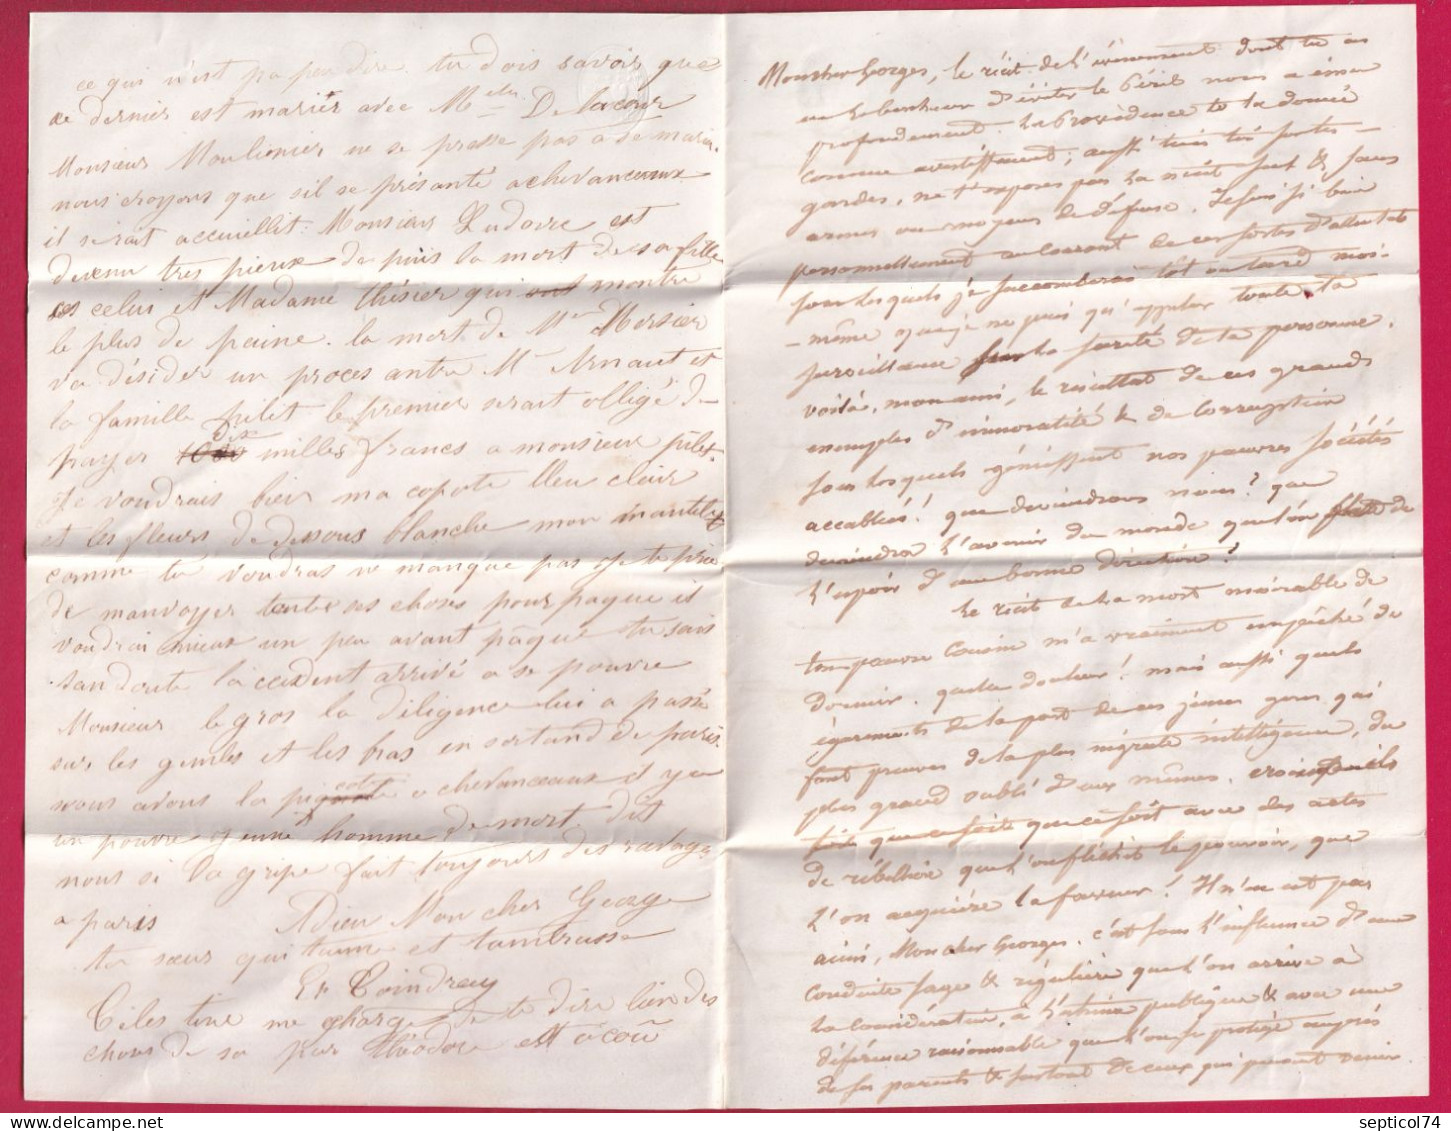 ce qui n'est pa peu dire tu dois savoir que
ce dernier est marier avec Melle Delacour
Monsieur Moulinier ne se presse pas a se marier
nous croyons que sil se présenté a chevanceaux
il serait accueillit. Monsieur Ludovic est
devenu tres pieux depuis la mort de sa fille
ces celui et Madame Thésier qui montre
le plus de peine. la mort de Mr Mersier
va désider un proces antre Mr Arnaut et
la famille pilet le premier serait obligé de
payer dix milles francs a monsieur pilet.
Je voudrais bien ma capote bleu clair
et les fleurs de dessous blanche mon mantelet
comme tu voudras ne manque pas je te prie
de manvoyer toute ses choses pour paque il
voudrai mieux un peu avant pâque tu sais
san doute laccident arrivé a se pauvre
Monsieur legros la diligence lui a passé
sur les jambes et les bras en sortand de paris.
nous avons la picote a chevanceaux il y a
un pauvre jeune homme de mort dit
nous si la gripe fait toujours des ravages
a paris Adieu Mon cher George
ta sœur qui taime et tambrasse
Er Coindreau
Celestine me charge de te dire bien des
choses de sa par Théodore est a cou
Mon cher Georges, le récit de l'événement dont tu as
eu le bonheur d'éviter le péril nous a émeu
profondement. La Providence te l'a donné
comme avertissement; aussi tiens toi sur tes
gardes, ne t'exposes pas la nuit seul & sans
armes ou moyens de défense. Je suis si bien
personnellement au courant de ces sortes d'attentats
sous lesquels je succomberai tôt ou tard moi-
-même que je ne puis qu'appeler toute ta
surveillance sur la sureté de ta personne.
voilà, mon ami, le résultat de ces grands
exemples d'immoralité & de corruption
sous lesquels gémissent nos pauvres sociétés
accablées! que deviendrons nous? que
deviendra l'avenir du monde que l'on flatte de
l'espoir d'une bonne direction?
Le récit de la mort misérable de
ton pauvre cousin m'a vraiment empêché de
dormir. quelle douleur! mais aussi quels
égarements de la part de ces jeunes gens qui
font preuves de la plus migrante intelligence, du
plus grand oubli d'eux mêmes. croient ils
que ce soit avec des actes
de rébellion que l'on fléchit le pouvoir, que
l'on acquière la faveur! Il n'en est pas
ainsi, Mon cher Georges. c'est sous l'influence d'une
conduite sage & régulière que l'on arrive à
la considération, à l'estime publique & avec une
déférence raisonnable que l'on se protége auprés
de ses parents & surtout de ceux qui peuvent devenir
SEPTICOL74